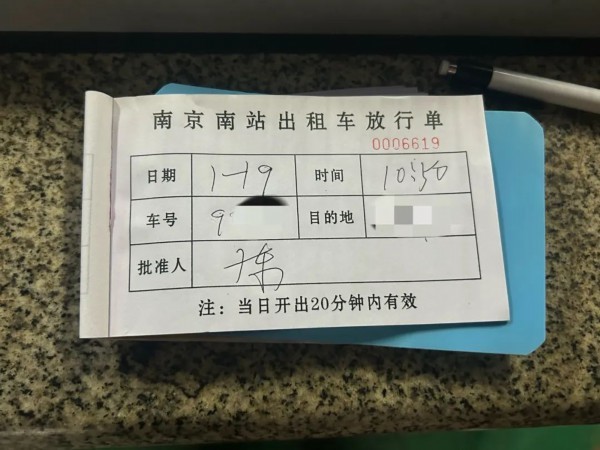 南京南站出租车放行单
0006619
日期 1-19 时间 10:50
车号 9 目的地
批准人
注：当日开出20分钟内有效